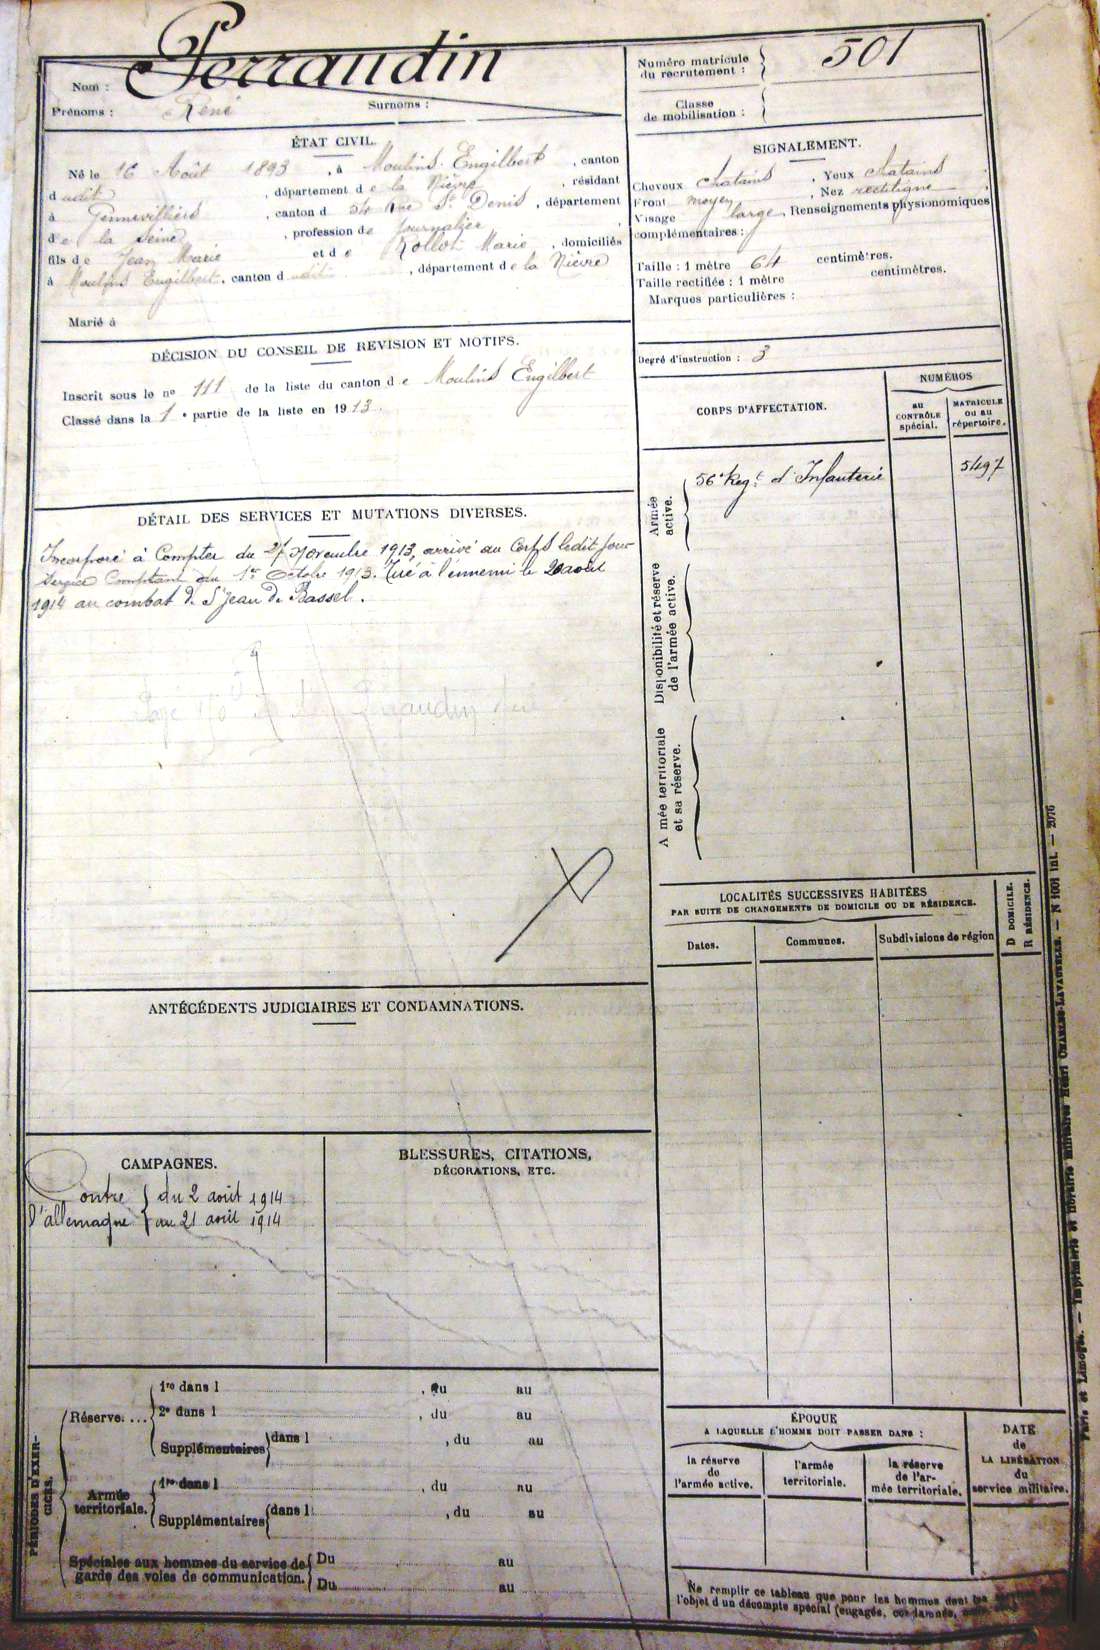 Nom : Perraudin
Prénoms : René Surnoms :
Numéro matricule du recrutement : 501
Classe de mobilisation :
ÉTAT CIVIL.
Né le 16 Août 1893, à Moulins Engilbert, canton
dudit, département de la Nièvre, résidant
à Gennevilliers, canton d 54 Rue St Denis, département
de la Seine, profession de journalier,
fils de Jean Marie et de Rollot Marie, domiciliés
à Moulins Engilbert, canton dudit, département de la Nièvre
Marié à
SIGNALEMENT.
Cheveux chatains, Yeux chatains,
Front moyen, Nez rectiligne,
Visage large, Renseignements physionomiques
complémentaires :
Taille : 1 mètre 64 centimètres.
Taille rectifiée : 1 mètre centimètres.
Marques particulières :
DÉCISION DU CONSEIL DE REVISION ET MOTIFS.
Inscrit sous le no 111 de la liste du canton de Moulins Engilbert
Classé dans la 1e partie de la liste en 1913.
Degré d'instruction : 3
CORPS D'AFFECTATION.
NUMÉROS
au CONTRÔLE spécial.
MATRICULE ou au répertoire.
Armée active.
56e Regt d'Infanterie
5497
Disponibilité et réserve de l'armée active.
A mée territoriale et sa réserve.
DÉTAIL DES SERVICES ET MUTATIONS DIVERSES.
Incorporé à Compter du 27 Novembre 1913, arrivé au Corps ledit jour
Service Comptant du 1er Octobre 1913. Tué à l'ennemi le 20 août
1914 au combat de St Jean de Bassel.
ANTÉCÉDENTS JUDICIAIRES ET CONDAMNATIONS.
LOCALITÉS SUCCESSIVES HABITÉES
PAR SUITE DE CHANGEMENTS DE DOMICILE OU DE RÉSIDENCE.
D DOMICILE.
R RÉSIDENCE.
Dates. Communes. Subdivisions de région
CAMPAGNES.
Contre } du 2 août 1914
l'allemagne } au 21 août 1914
BLESSURES, CITATIONS,
DÉCORATIONS, ETC.
PÉRIODES D'EXERCICES.
Réserve....
1re dans l , du au
2e dans l , du au
Supplémentaires dans l , du au
Armée territoriale.
1re dans l , du au
Supplémentaires dans l , du au
Spéciales aux hommes du service de garde des voies de communication.
Du au
Du au
ÉPOQUE
A LAQUELLE L'HOMME DOIT PASSER DANS :
la réserve de l'armée active.
l'armée territoriale.
la réserve de l'armée territoriale.
DATE de LA LIBÉRATION du service militaire.
Ne remplir ce tableau que pour les hommes dont les
l'objet d'un décompte spécial (engagés, condamnés,
Paris et Limoges. — Imprimerie et librairie militaires Henri CHARLES-LAVAUZELLE. — N 1001 int. — 2076